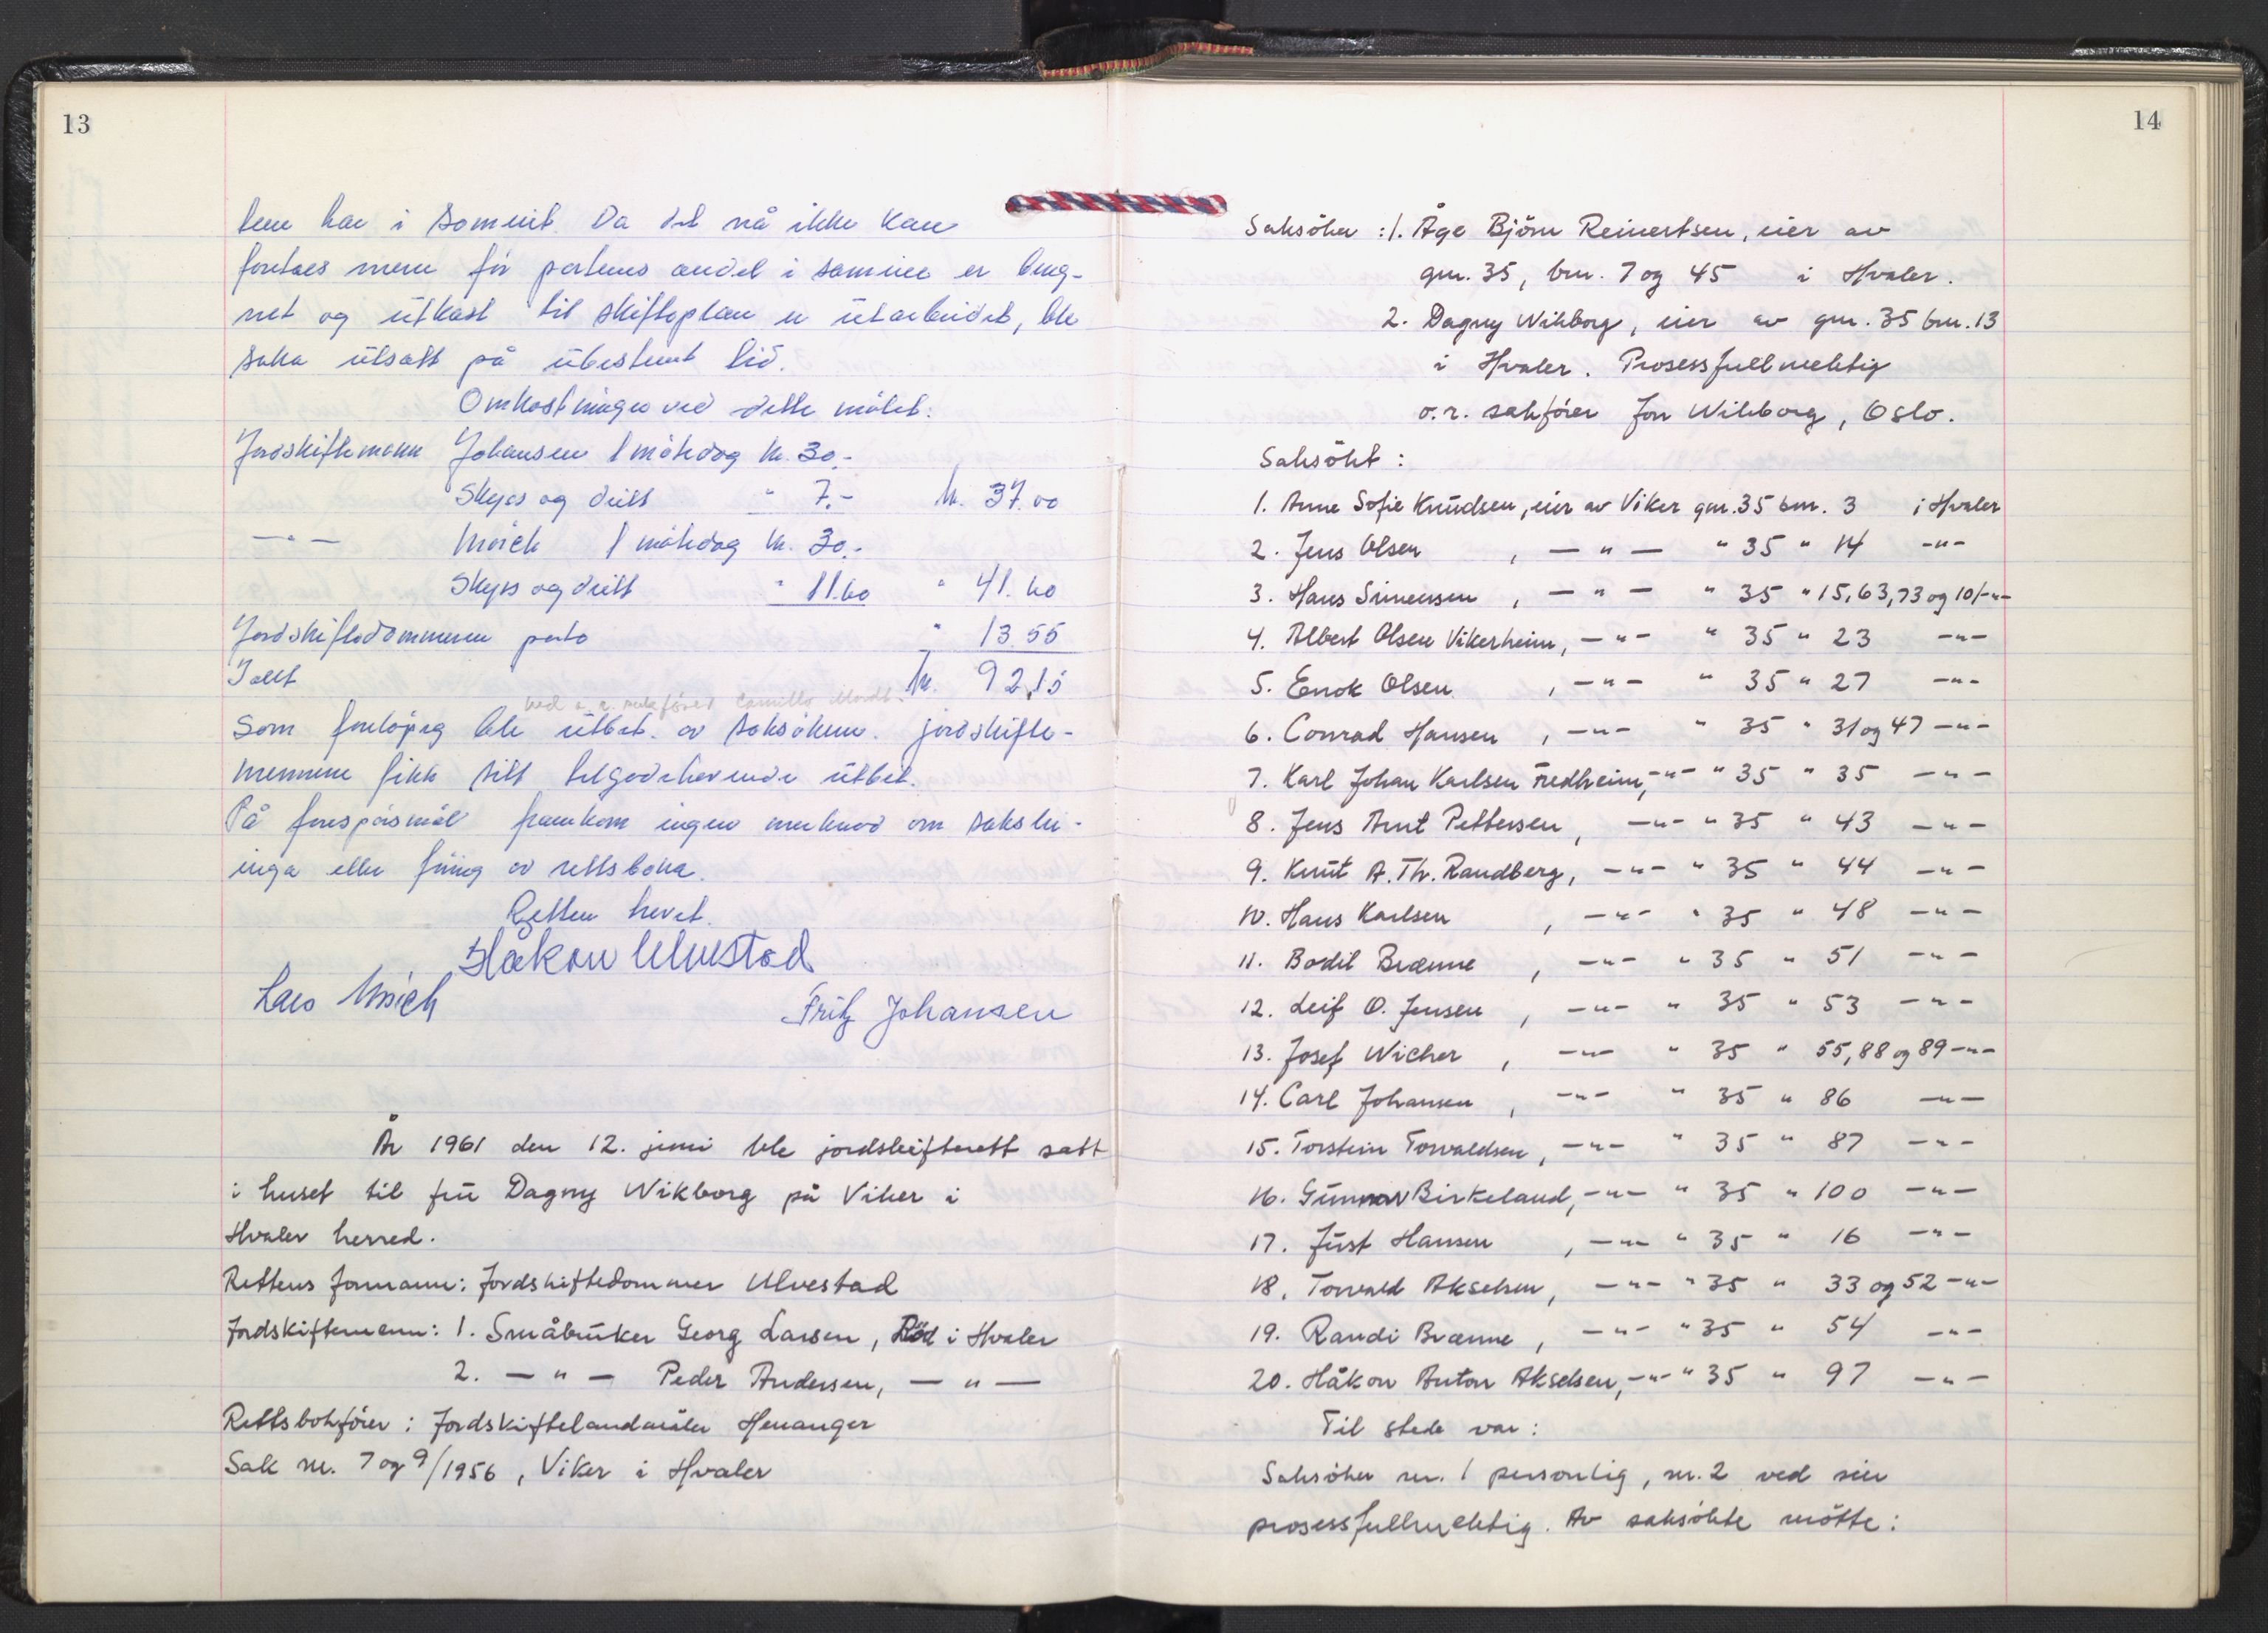 13
tene har i sameiet. Da det nå ikke kan
foretaes mere för partenes andel i sameiet er bereg-
net og utkast til skifteplan er utarbeidet, ble
saka utsatt på ubestemt tid.
Omkostninger ved dette mötet:
Jordskiftemann Johansen 1 mötedag kr. 30.-
Skyss og diett " 7.- kr. 37.00
— " — Mörch 1 mötedag kr. 30.-
Skyss og diett " 11.60 " 41.60
Jordskiftedommeren porto " 13.55
Ialt kr. 92,15
ved o.r. sakförer Camillo Mordt.
Som forelöpig ble utbet. av saksökeren. Jordskifte-
mennene fikk sitt tilgodehavende utbet.
På forespörsmål framkom ingen merknad om saksbe-
inga eller föring av rettsboka.
Retten hevet.
Håkon Ulvestad
Lars Mörch
Fritz Johansen
År 1961 den 12. juni ble jordskifterett satt
i huset til fru Dagny Wikborg på Viker i
Hvaler herred.
Rettens formann: Jordskiftedommer Ulvestad
Jordskiftemenn: 1. Småbruker Georg Larsen, Röd i Hvaler
2. — " — Peder Andersen, — " —
Rettsbokförer: Jordskiftelandmåler Henanger
Sak nr. 7 og 9/1956, Viker i Hvaler
14
Saksöker: 1. Åge Björn Reinertsen, eier av
gnr. 35, bnr. 7 og 45 i Hvaler.
2. Dagny Wikborg, eier av gnr. 35 bnr. 13
i Hvaler. Prosessfullmektig
o.r. sakförer Jon Wikborg, Oslo.
Saksökt:
1. Anne Sofie Knudsen, eier av Viker gnr. 35 bnr. 3 i Hvaler
2. Jens Olsen, — " — " 35 " 14 -"-
3. Hans Simensen, — " — " 35 " 15, 63, 73 og 101 -"-
4. Albert Olsen Vikerheim, -"- " 35 " 23 -"-
5. Enok Olsen, -"- " 35 " 27 -"-
6. Conrad Hansen, -"- " 35 " 31 og 47 -"-
7. Karl Johan Karlsen Fredheim, -"- " 35 " 35 -"-
8. Jens Arnt Pettersen, -"- " 35 " 43 -"-
9. Knut A. Th. Randberg, -"- " 35 " 44 -"-
10. Hans Karlsen, -"- " 35 " 48 -"-
11. Bodil Brænne, -"- " 35 " 51 -"-
12. Leif O. Jensen, -"- " 35 " 53 -"-
13. Josef Wicher, -"- " 35 " 55, 88 og 89 -"-
14. Carl Johansen, -"- " 35 " 86 -"-
15. Torstein Torvaldsen, -"- " 35 " 87 -"-
16. Gunnar Birkeland, -"- " 35 " 100 -"-
17. Just Hansen, -"- " 35 " 16 -"-
18. Torvald Akselsen, -"- " 35 " 33 og 52 -"-
19. Randi Brænne, -"- " 35 " 54 -"-
20. Håkon Anton Akselsen, -"- " 35 " 97 -"-
Til stede var:
Saksöker nr. 1 personlig, nr. 2 ved sin
prosessfullmektig. Av saksökte mötte: